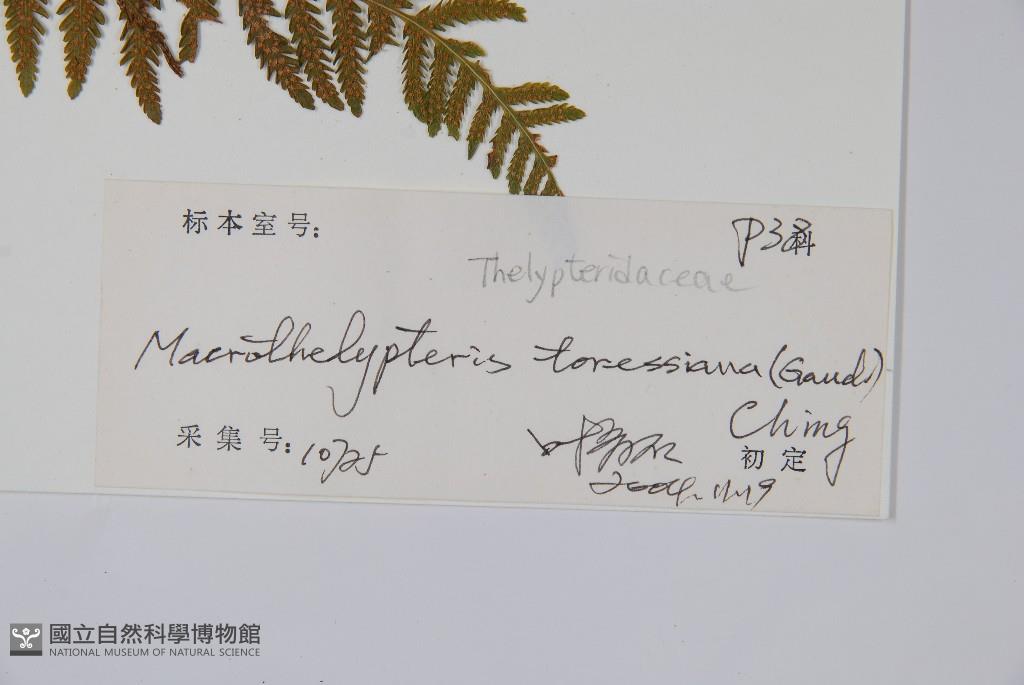 标本室号:
P38科
Thelypteridaceae
Macrothelypteris toressiana (Gaud.)
Ching
采集号: 10725
初定
2004.11.19
國立自然科學博物館
NATIONAL MUSEUM OF NATURAL SCIENCE